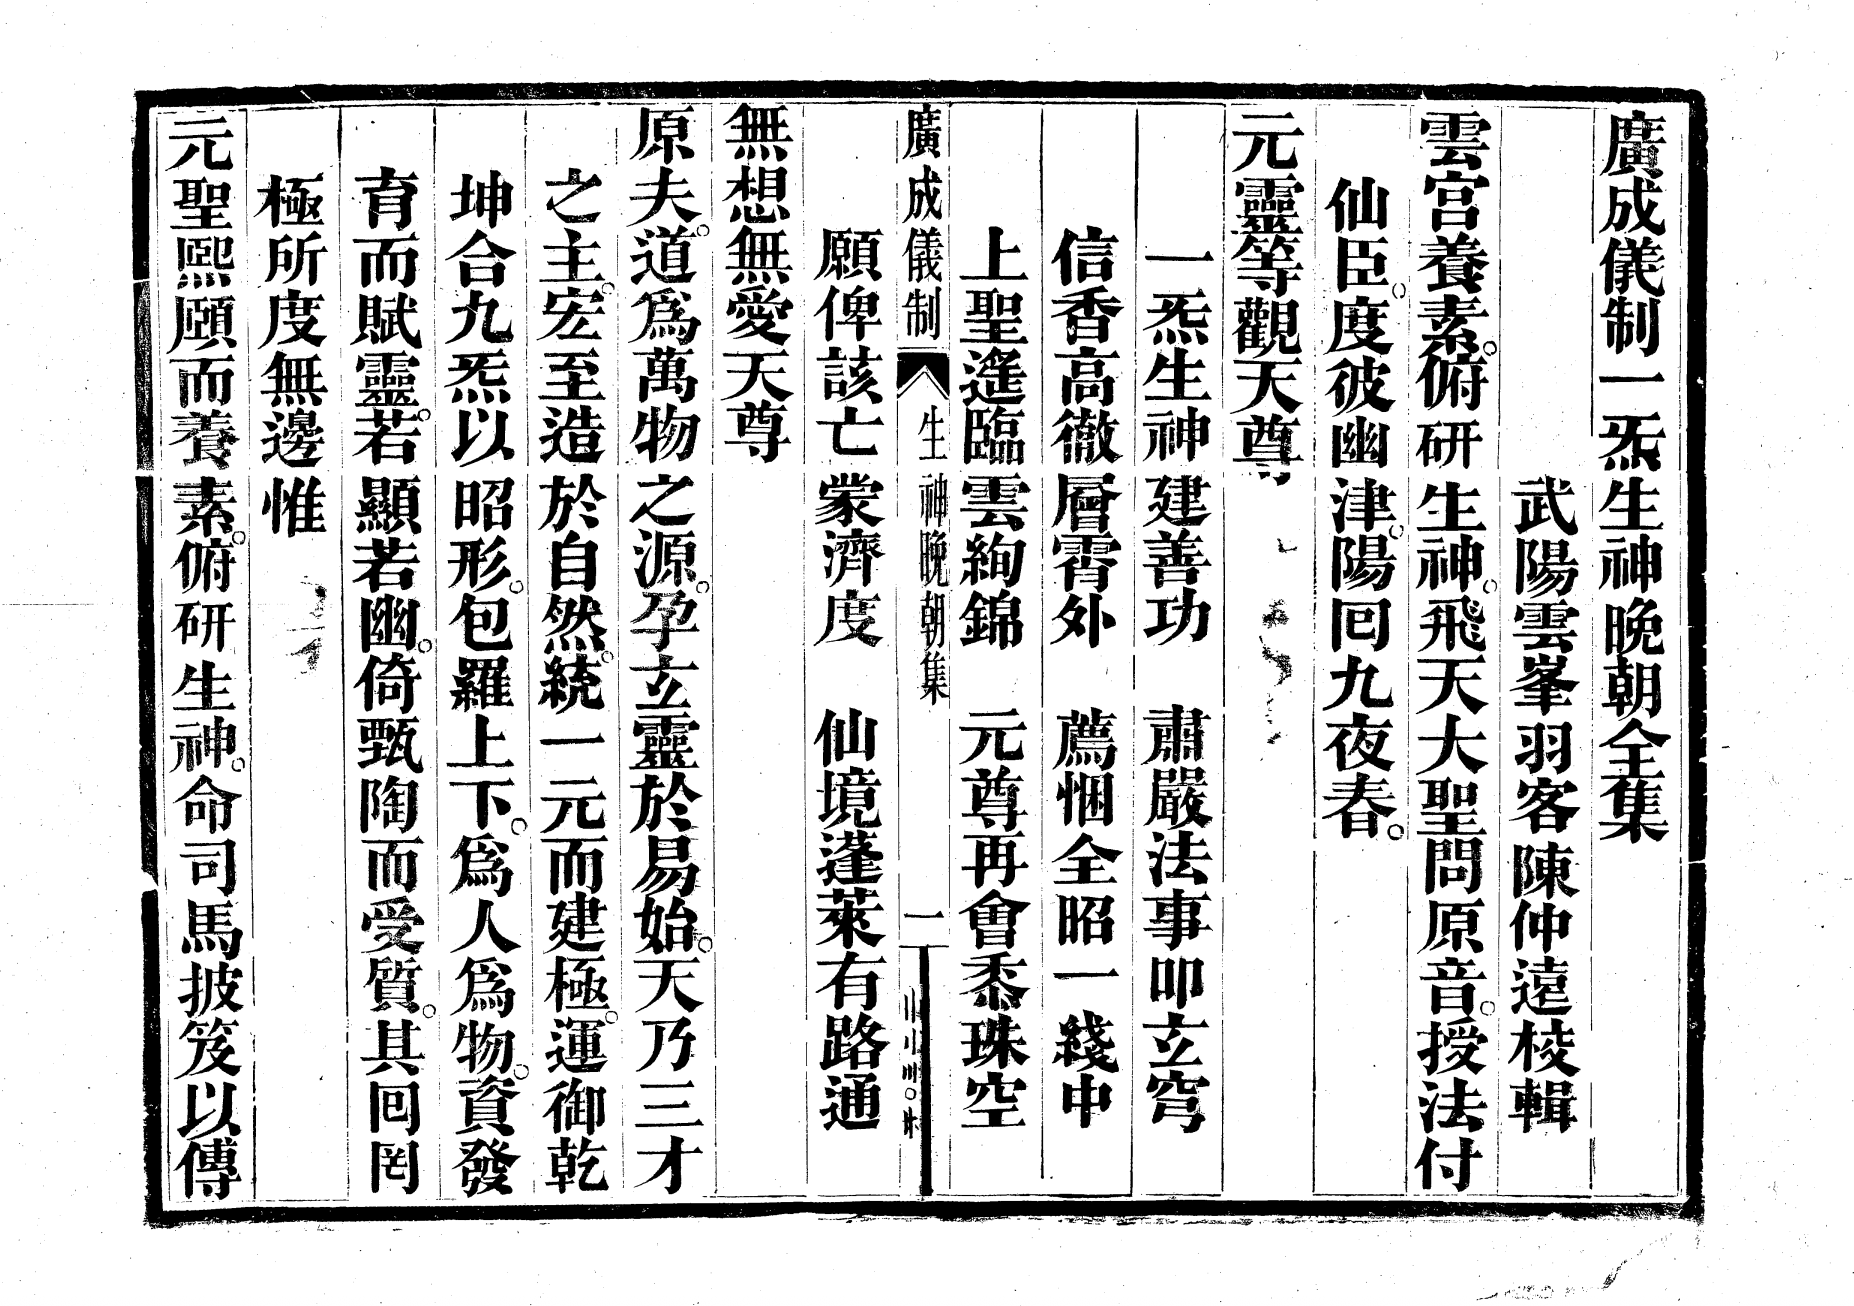 廣成儀制一炁生神晚朝全集
武陽雲峯羽客陳仲遠校輯
雲宮養素。俯研生神。飛天大聖問原音。授法付
仙臣。度彼幽津。陽回九夜春。
元靈等觀天尊
一炁生神建善功　肅嚴法事叩玄穹
信香高徹層霄外　薦悃全昭一綫中
上聖遙臨雲絢錦　元尊再會黍珠空
願俾該亡蒙濟度　仙境蓬萊有路通
廣成儀制　生神晚朝集　一
無想無愛天尊
原夫。道爲萬物之源。孕玄靈於易始。天乃三才
之主。宏至造於自然。統一元而建極。運御乾
坤合九炁以昭形。包羅上下。爲人爲物。資發
育而賦靈。若顯若幽。倚甄陶而受質。其回罔
極所度無邊惟
元聖熙頤而養素。俯研生神。命司馬披笈以傳